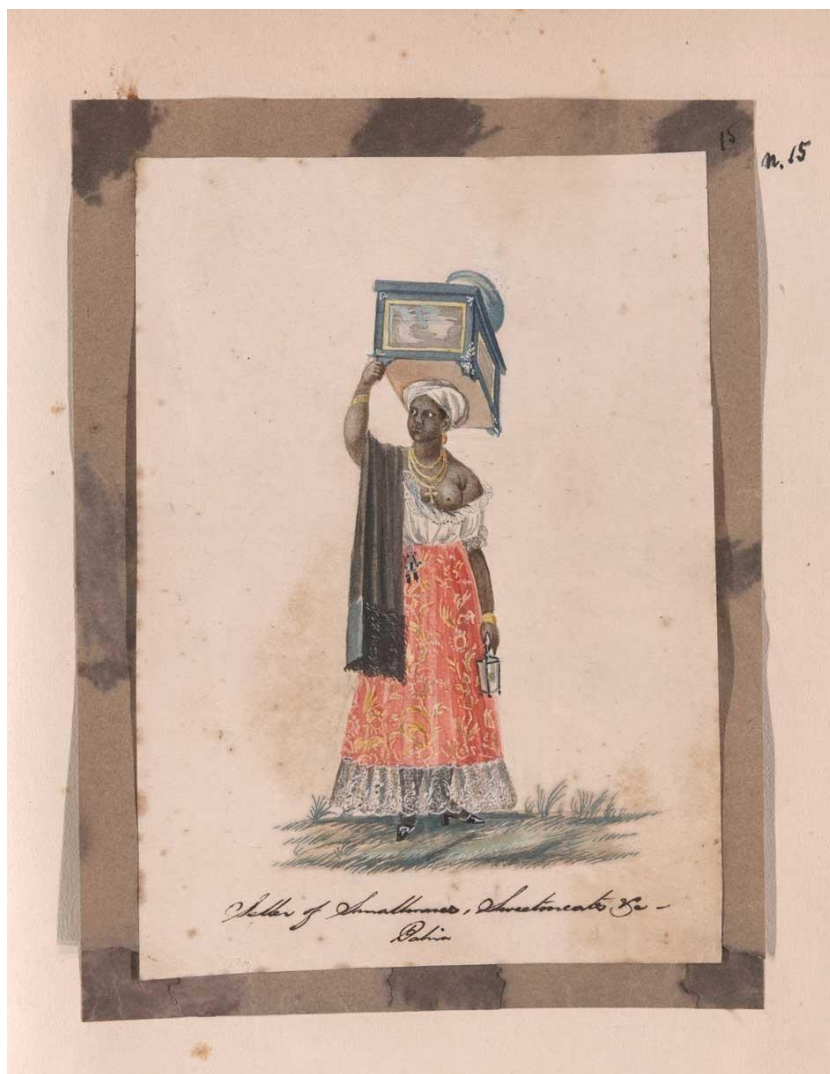 15
n. 15
Seller of Smallwares, Sweetmeats &c -
Bahia